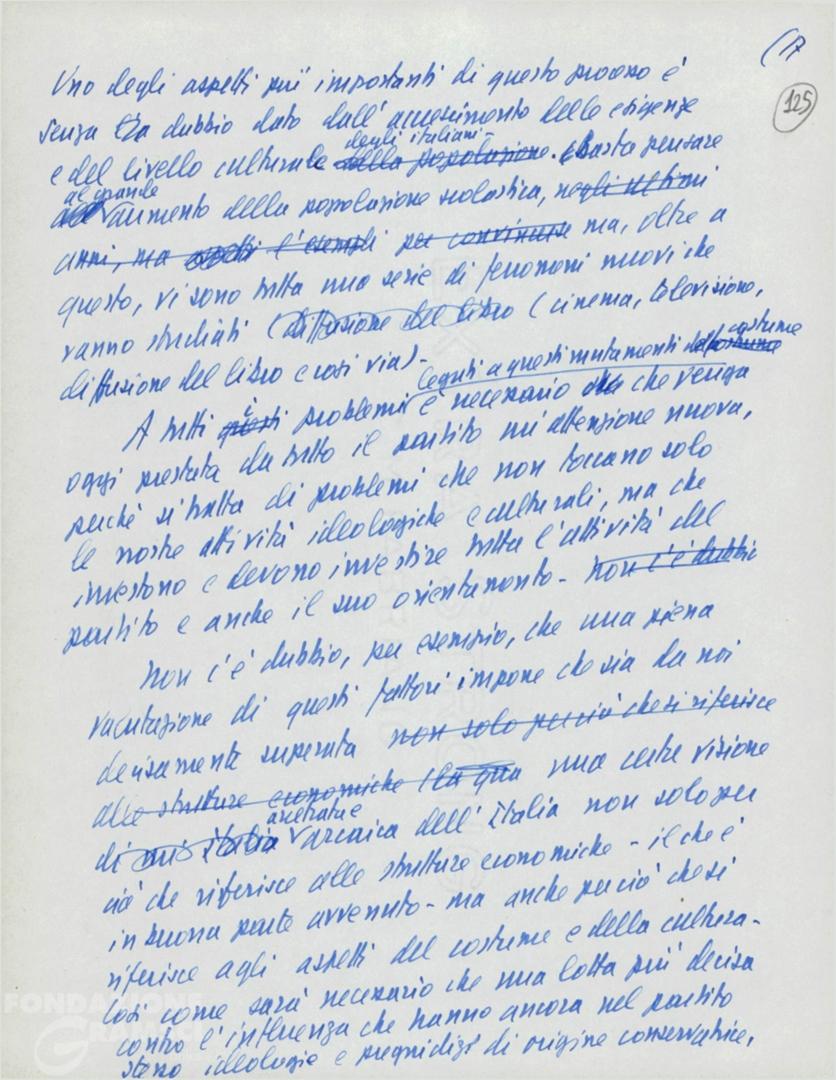 (17
125
Uno degli aspetti più importanti di questo processo è
senza dubbio dato dall'accrescimento delle esigenze
degli italiani -
e del livello culturale della popolazione. Basta pensare
al grande
aumento della popolazione scolastica, negli ultimi
anni, ma l'esempli per convincerse ma, oltre a
questo, vi sono tutta una serie di fenomeni nuovi che
vanno studiati (diffusione del libro (cinema, televisione,
diffusione del libro e così via) -
legati a questi mutamenti del costume
A tutti i problemi è necessario che venga
oggi prestata da tutto il partito un'attenzione nuova,
perché si tratta di problemi che non toccano solo
le nostre attività ideologiche e culturali, ma che
investono e devono investire tutta l'attività del
partito e anche il suo orientamento - non c'è dubbio
Non c'è dubbio, per esempio, che una piena
valutazione di questi fattori impone che sia da noi
decisamente superata non solo perciò che si riferisce
alle strutture economiche una certa visione
arretrata e
di Italia arcaica dell'Italia non solo per
ciò che riferisce alle strutture economiche - il che è
in buona parte avvenuto - ma anche perciò che si
riferisce agli aspetti del costume e della cultura -
Così come sarà necessario che una lotta più decisa
contro l'influenza che hanno ancora nel partito
stesso ideologie e pregiudizi di origine conservatrice,
FONDAZIONE
GRAMSCI